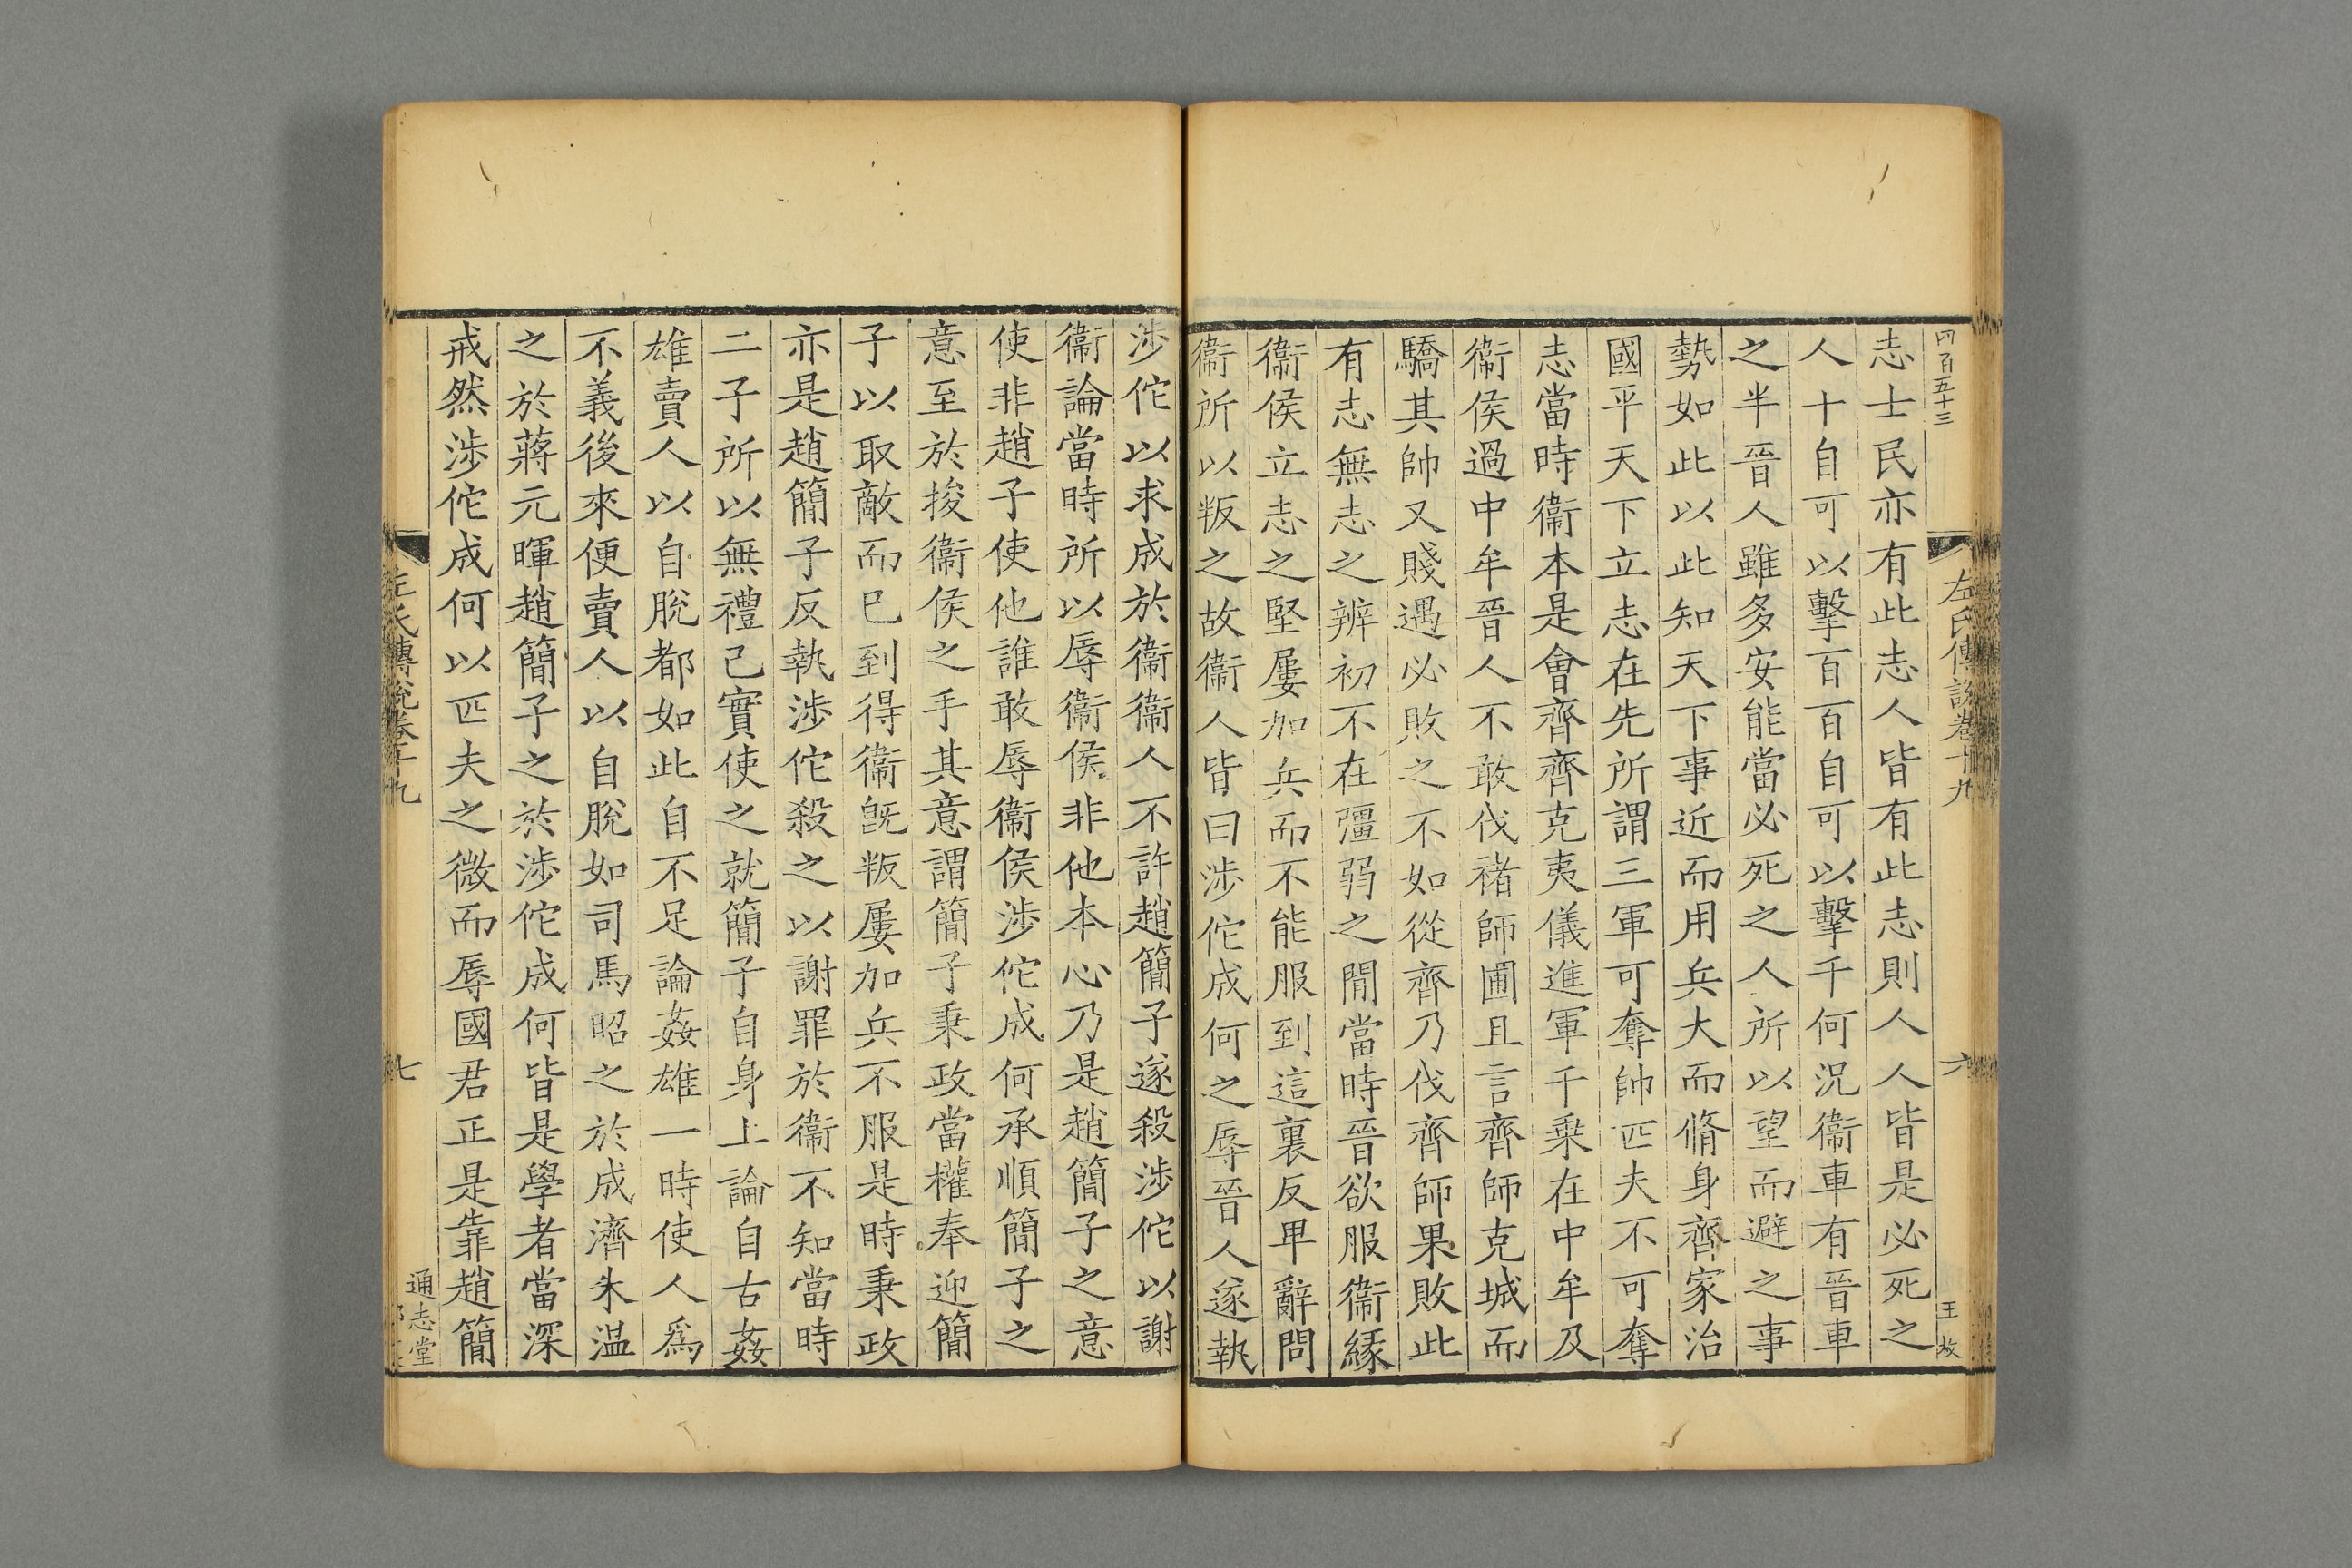 四百五十三
左氏傳說卷十九
六
王枚
志士民亦有此志人皆有此志則人人皆是必死之
人十自可以擊百百自可以擊千何況衞車有晉車
之半晉人雖多安能當必死之人所以望而避之事
勢如此以此知天下事近而用兵大而脩身齊家治
國平天下立志在先所謂三軍可奪帥匹夫不可奪
志當時衞本是會齊齊克夷儀進軍千乗在中牟及
衞侯過中牟晉人不敢伐褚師圃且言齊師克城而
驕其帥又賤遇必敗之不如從齊乃伐齊師果敗此
有志無志之辨初不在彊弱之間當時晉欲服衞緣
衞侯立志之堅屢加兵而不能服到這裏反卑辭問
衞所以叛之故衞人皆曰涉佗成何之辱晉人遂執
涉佗以求成於衞衞人不許趙簡子遂殺涉佗以謝
衞論當時所以辱衞侯非他本心乃是趙簡子之意
使非趙子使他誰敢辱衞侯涉佗成何承順簡子之
意至於捘衞侯之手其意謂簡子秉政當權奉迎簡
子以取敵而已到得衞旣叛屢加兵不服是時秉政
亦是趙簡子反執涉佗殺之以謝罪於衞不知當時
二子所以無禮己實使之就簡子自身上論自古姦
雄賣人以自脫都如此自不足論姦雄一時使人爲
不義後來便賣人以自脫如司馬昭之於成濟朱温
之於蔣元暉趙簡子之於涉佗成何皆是學者當深
戒然涉佗成何以匹夫之微而辱國君正是靠趙簡
左氏傳說卷十九
七
通志堂